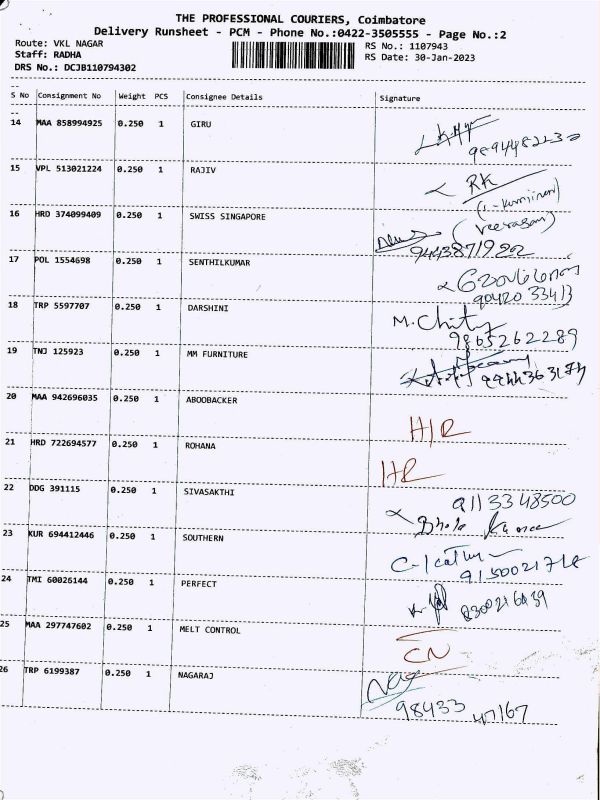 THE PROFESSIONAL COURIERS, Coimbatore
Delivery Runsheet - PCM - Phone No.:0422-3505555 - Page No.:2
Route: VKL NAGAR RS No.: 1107943
Staff: RADHA RS Date: 30-Jan-2023
DRS No.: DCJB110794302
S No Consignment No Weight PCS Consignee Details Signature
14 MAA 858994925 0.250 1 GIRU
15 VPL 513021224 0.250 1 RAJIV RK
16 HRD 374099409 0.250 1 SWISS SINGAPORE
9443871922
17 POL 1554698 0.250 1 SENTHILKUMAR
90420 33413
18 TRP 5597707 0.250 1 DARSHINI
9865262289
19 TNJ 125923 0.250 1 MM FURNITURE
20 MAA 942696035 0.250 1 ABOOBACKER
21 HRD 722694577 0.250 1 ROHANA
22 DDG 391115 0.250 1 SIVASAKTHI 9113348500
23 KUR 694412446 0.250 1 SOUTHERN
24 TMI 60026144 0.250 1 PERFECT
25 MAA 297747602 0.250 1 MELT CONTROL CN
26 TRP 6199387 0.250 1 NAGARAJ
98433 47167